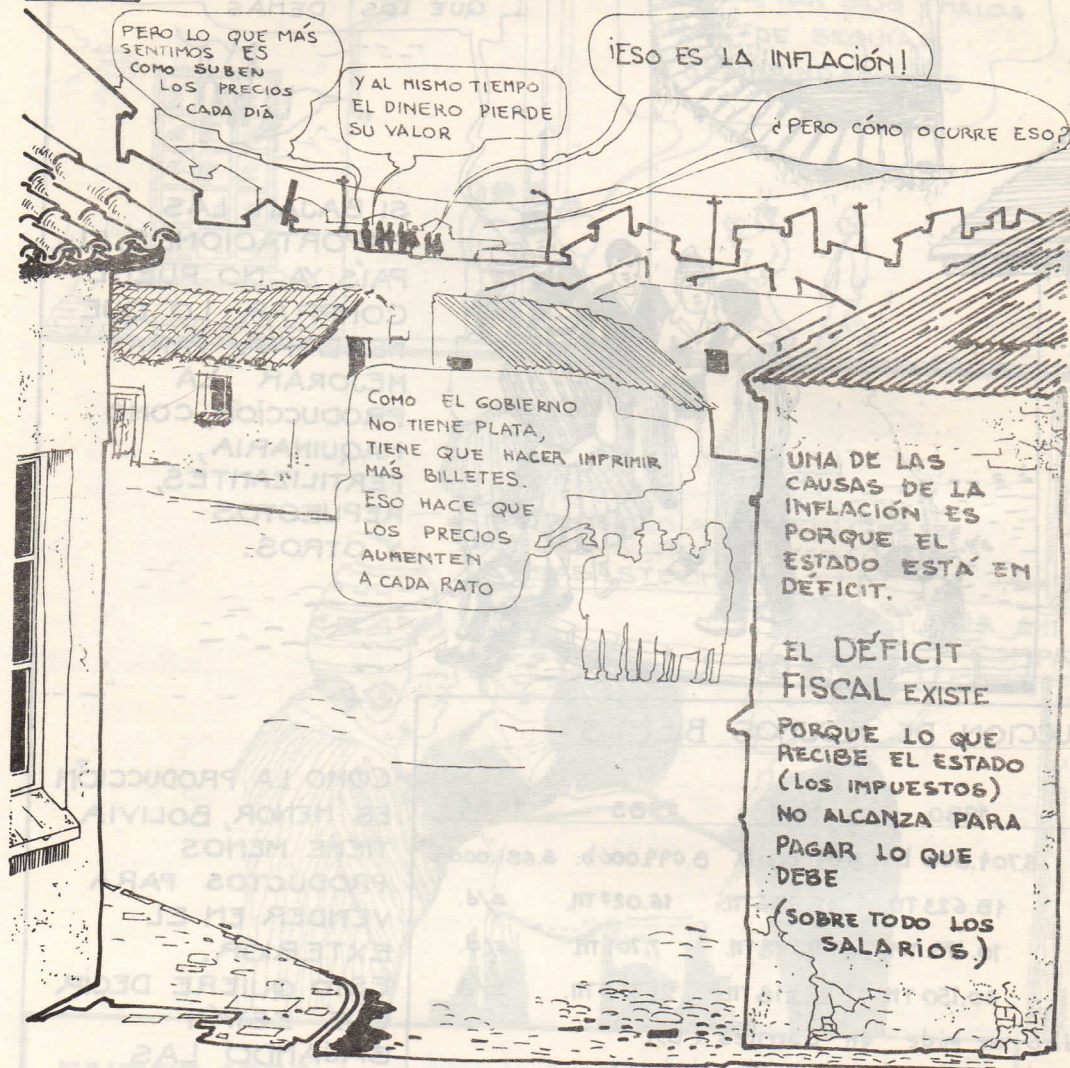 PERO LO QUE MÁS
SENTIMOS ES
COMO SUBEN
LOS PRECIOS
CADA DÍA
Y AL MISMO TIEMPO
EL DINERO PIERDE
SU VALOR
¡ESO ES LA INFLACIÓN!
¿PERO CÓMO OCURRE ESO?
COMO EL GOBIERNO
NO TIENE PLATA,
TIENE QUE HACER IMPRIMIR
MÁS BILLETES.
ESO HACE QUE
LOS PRECIOS
AUMENTEN
A CADA RATO
UNA DE LAS
CAUSAS DE LA
INFLACIÓN ES
PORQUE EL
ESTADO ESTÁ EN
DÉFICIT.
EL DÉFICIT
FISCAL EXISTE
PORQUE LO QUE
RECIBE EL ESTADO
(LOS IMPUESTOS)
NO ALCANZA PARA
PAGAR LO QUE
DEBE
(SOBRE TODO LOS
SALARIOS)